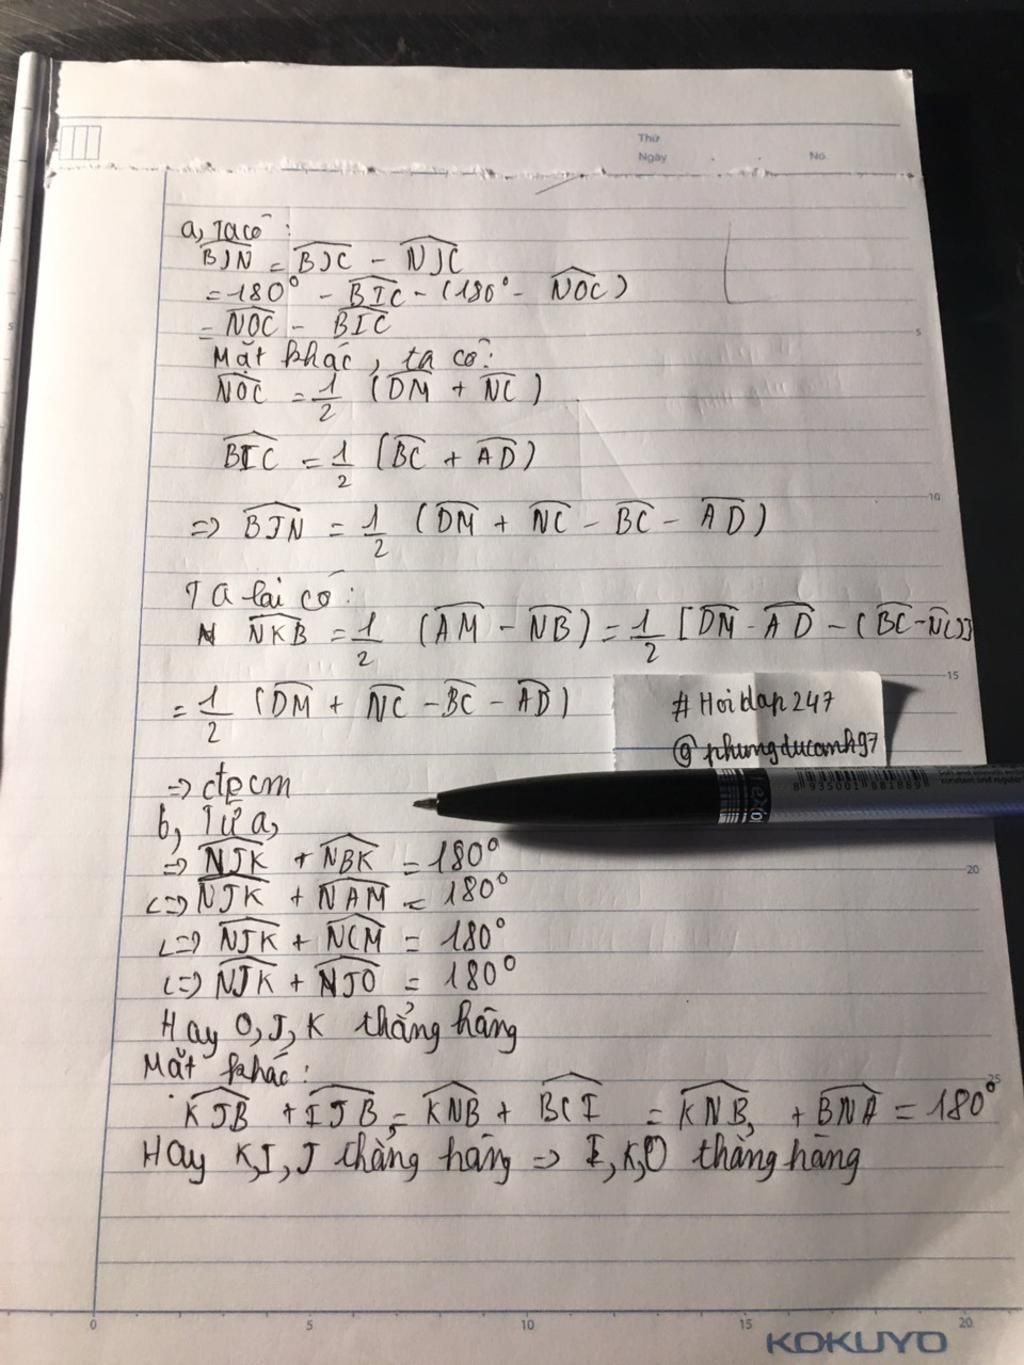 Thứ
Ngày . . No.
a, Ta có:
BJN = BJC - NJC
= 180° - BIC - (180° - NOC)
= NOC - BIC
Mặt khác, ta có:
NOC = 1/2 (DM + NC)
BIC = 1/2 (BC + AD)
=> BJN = 1/2 (DM + NC - BC - AD)
Ta lại có:
NKB = 1/2 (AM - NB) = 1/2 [DM - AD - (BC - NC)]
= 1/2 (DM + NC - BC - AD)
#Hoidap247
@phungducanh97
=> đpcm
8 935001 881889
b, Từ a,
=> NJK + NBK = 180°
<=> NJK + NAM = 180°
<=> NJK + NCM = 180°
<=> NJK + NJO = 180°
Hay O, J, K thẳng hàng
Mặt khác:
KJB + IJB = KNB + BCI = KNB + BNA = 180°
Hay K, I, J thẳng hàng => I, K, O thẳng hàng
5
10
15
20
25
0 5 10 15 20
KOKUYO